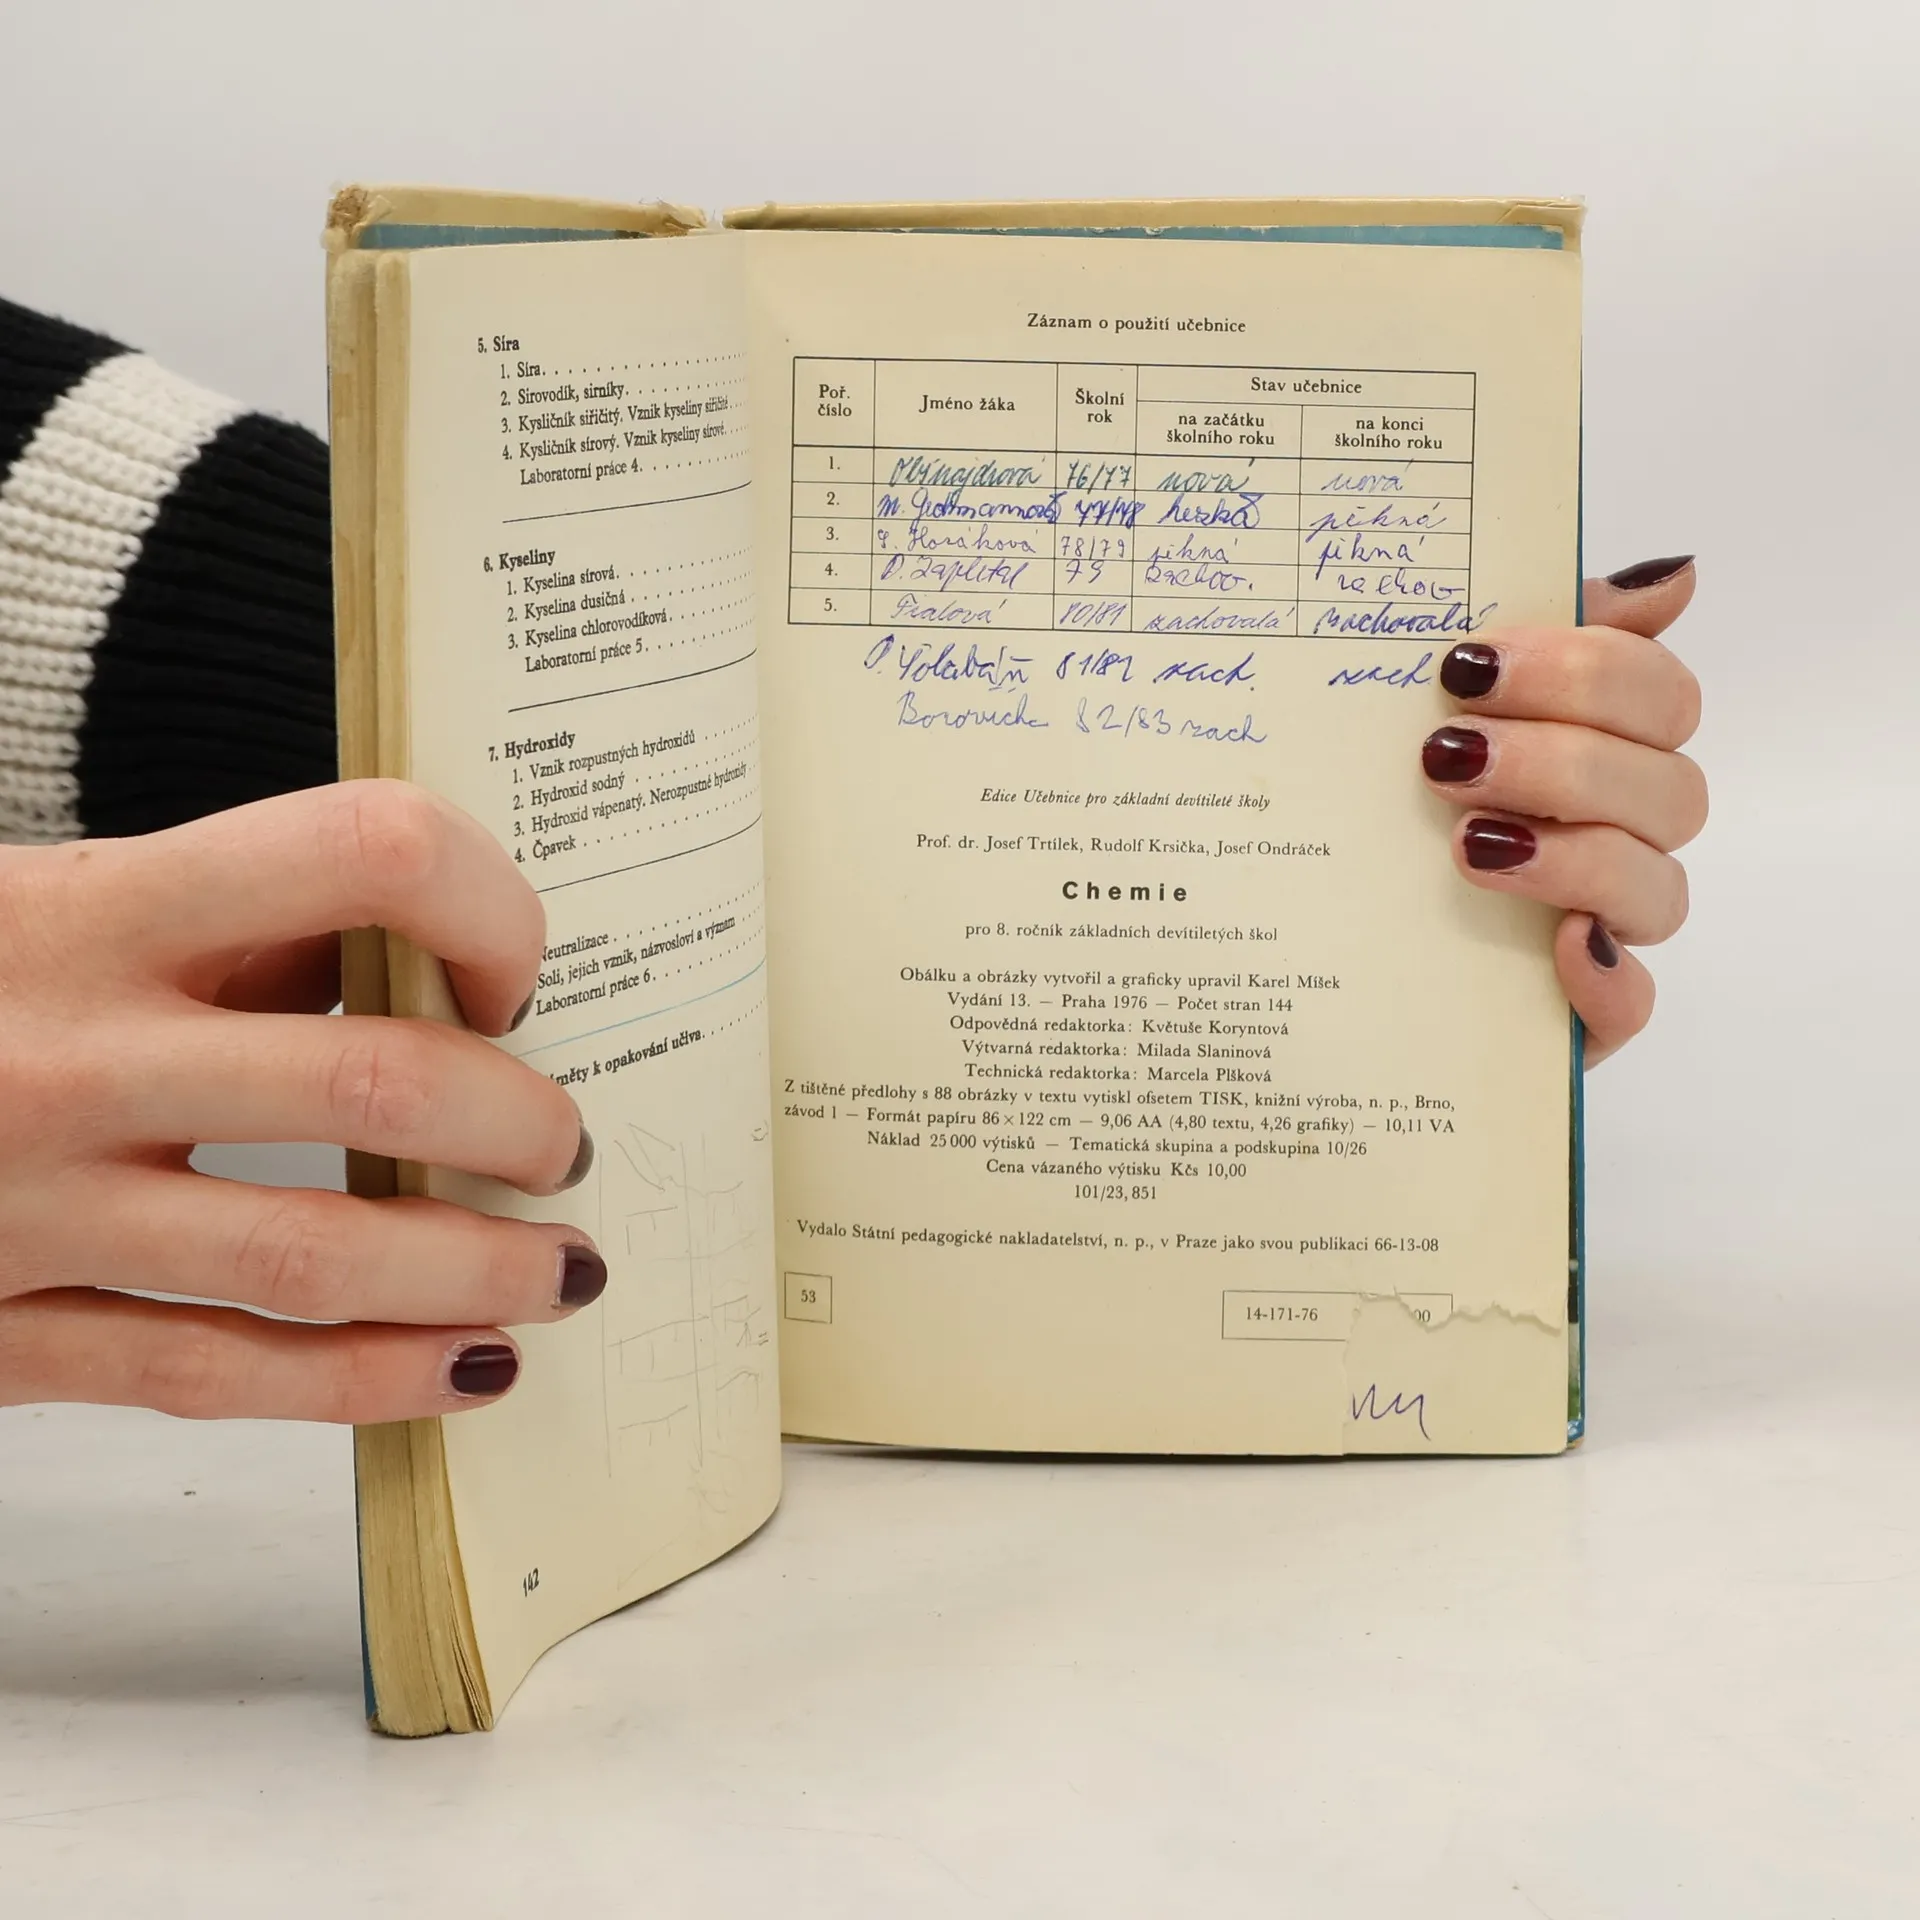 5. Síra
1. Síra
2. Sirovodík, sirníky
3. Kysličník siřičitý. Vznik kyseliny siřičité
4. Kysličník sírový. Vznik kyseliny sírové
Laboratorní práce 4
6. Kyseliny
1. Kyselina sírová
2. Kyselina dusičná
3. Kyselina chlorovodíková
Laboratorní práce 5
7. Hydroxidy
1. Vznik rozpustných hydroxidů
2. Hydroxid sodný
3. Hydroxid vápenatý. Nerozpustné hydroxidy
4. Čpavek
Neutralizace
Soli, jejich vznik, názvosloví a význam
Laboratorní práce 6
k opakování učiva
142
Záznam o použití učebnice
Poř. číslo Jméno žáka Školní rok Stav učebnice
na začátku školního roku na konci školního roku
1. 76/77 nová nová
2. M. 77/78 hezká pěkná
3. Horáková 78/79 pěkná pěkná
4. D. Zapletal 79 zachov. zachov
5. Fialová 80/81 zachovalá zachovalá
81/82 zach. zach
82/83 zach
Edice Učebnice pro základní devítileté školy
Prof. dr. Josef Trtílek, Rudolf Krsička, Josef Ondráček
Chemie
pro 8. ročník základních devítiletých škol
Obálku a obrázky vytvořil a graficky upravil Karel Míšek
Vydání 13. — Praha 1976 — Počet stran 144
Odpovědná redaktorka: Květuše Koryntová
Výtvarná redaktorka: Milada Slaninová
Technická redaktorka: Marcela Plšková
Z tištěné předlohy s 88 obrázky v textu vytiskl ofsetem TISK, knižní výroba, n. p., Brno,
závod 1 — Formát papíru 86 × 122 cm — 9,06 AA (4,80 textu, 4,26 grafiky) — 10,11 VA
Náklad 25 000 výtisků — Tematická skupina a podskupina 10/26
Cena vázaného výtisku Kčs 10,00
101/23, 851
Vydalo Státní pedagogické nakladatelství, n. p., v Praze jako svou publikaci 66-13-08
53
14-171-76 00